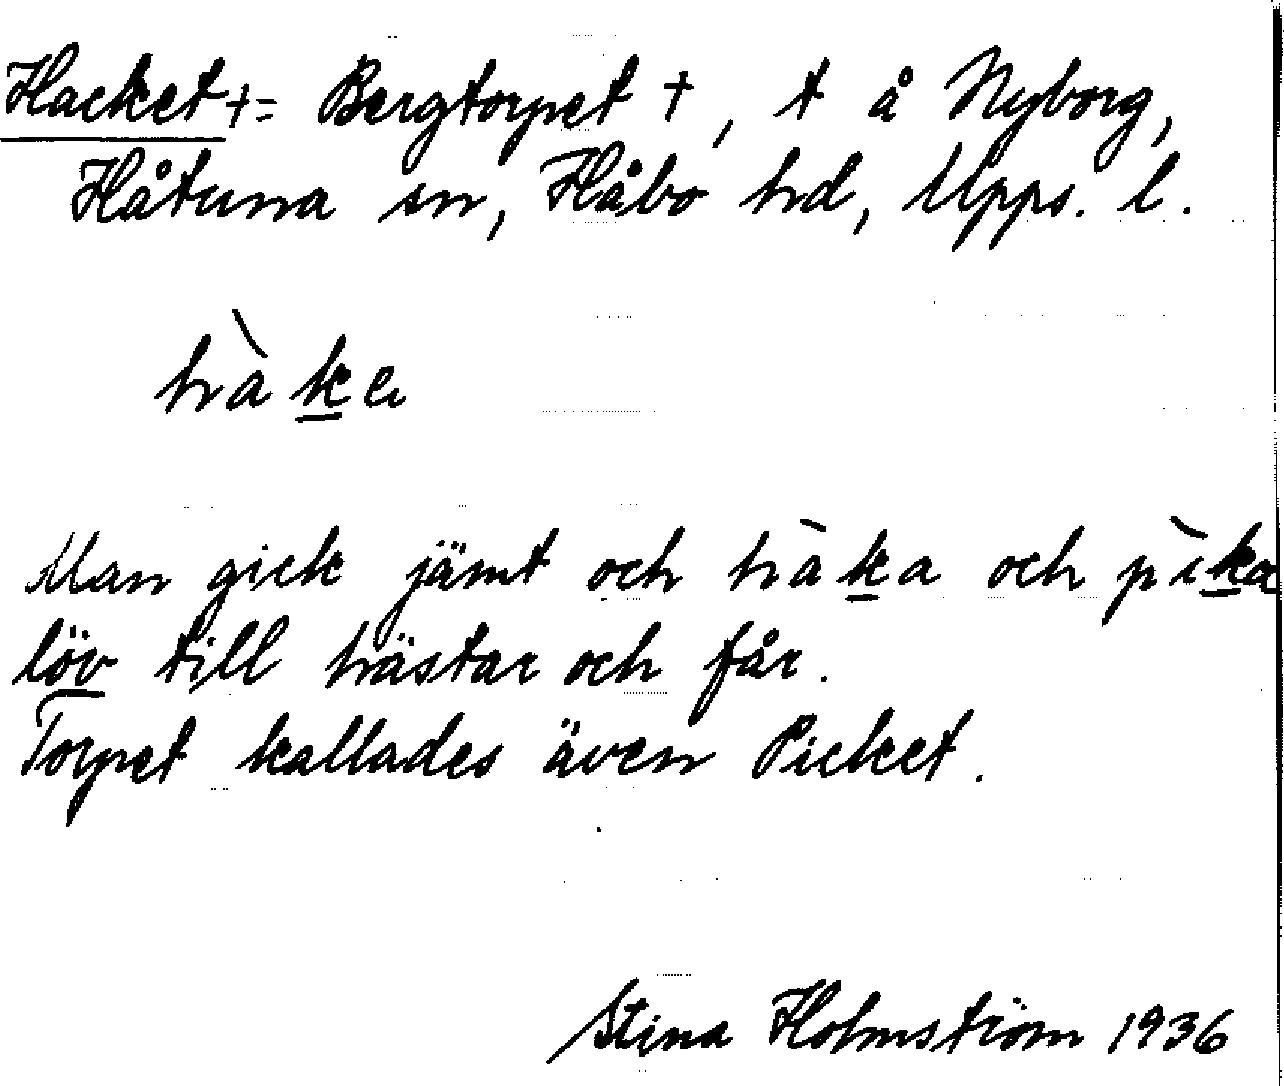 Hacket †= Bergtorpet †, t å Nyborg,
Håtuna sn, Håbo hd, Upps. l.
hàke
Man gick jämt och hàka och pìka
löv till hästar och får.
Torpet kallades även Picket.
Stina Holmström 1936